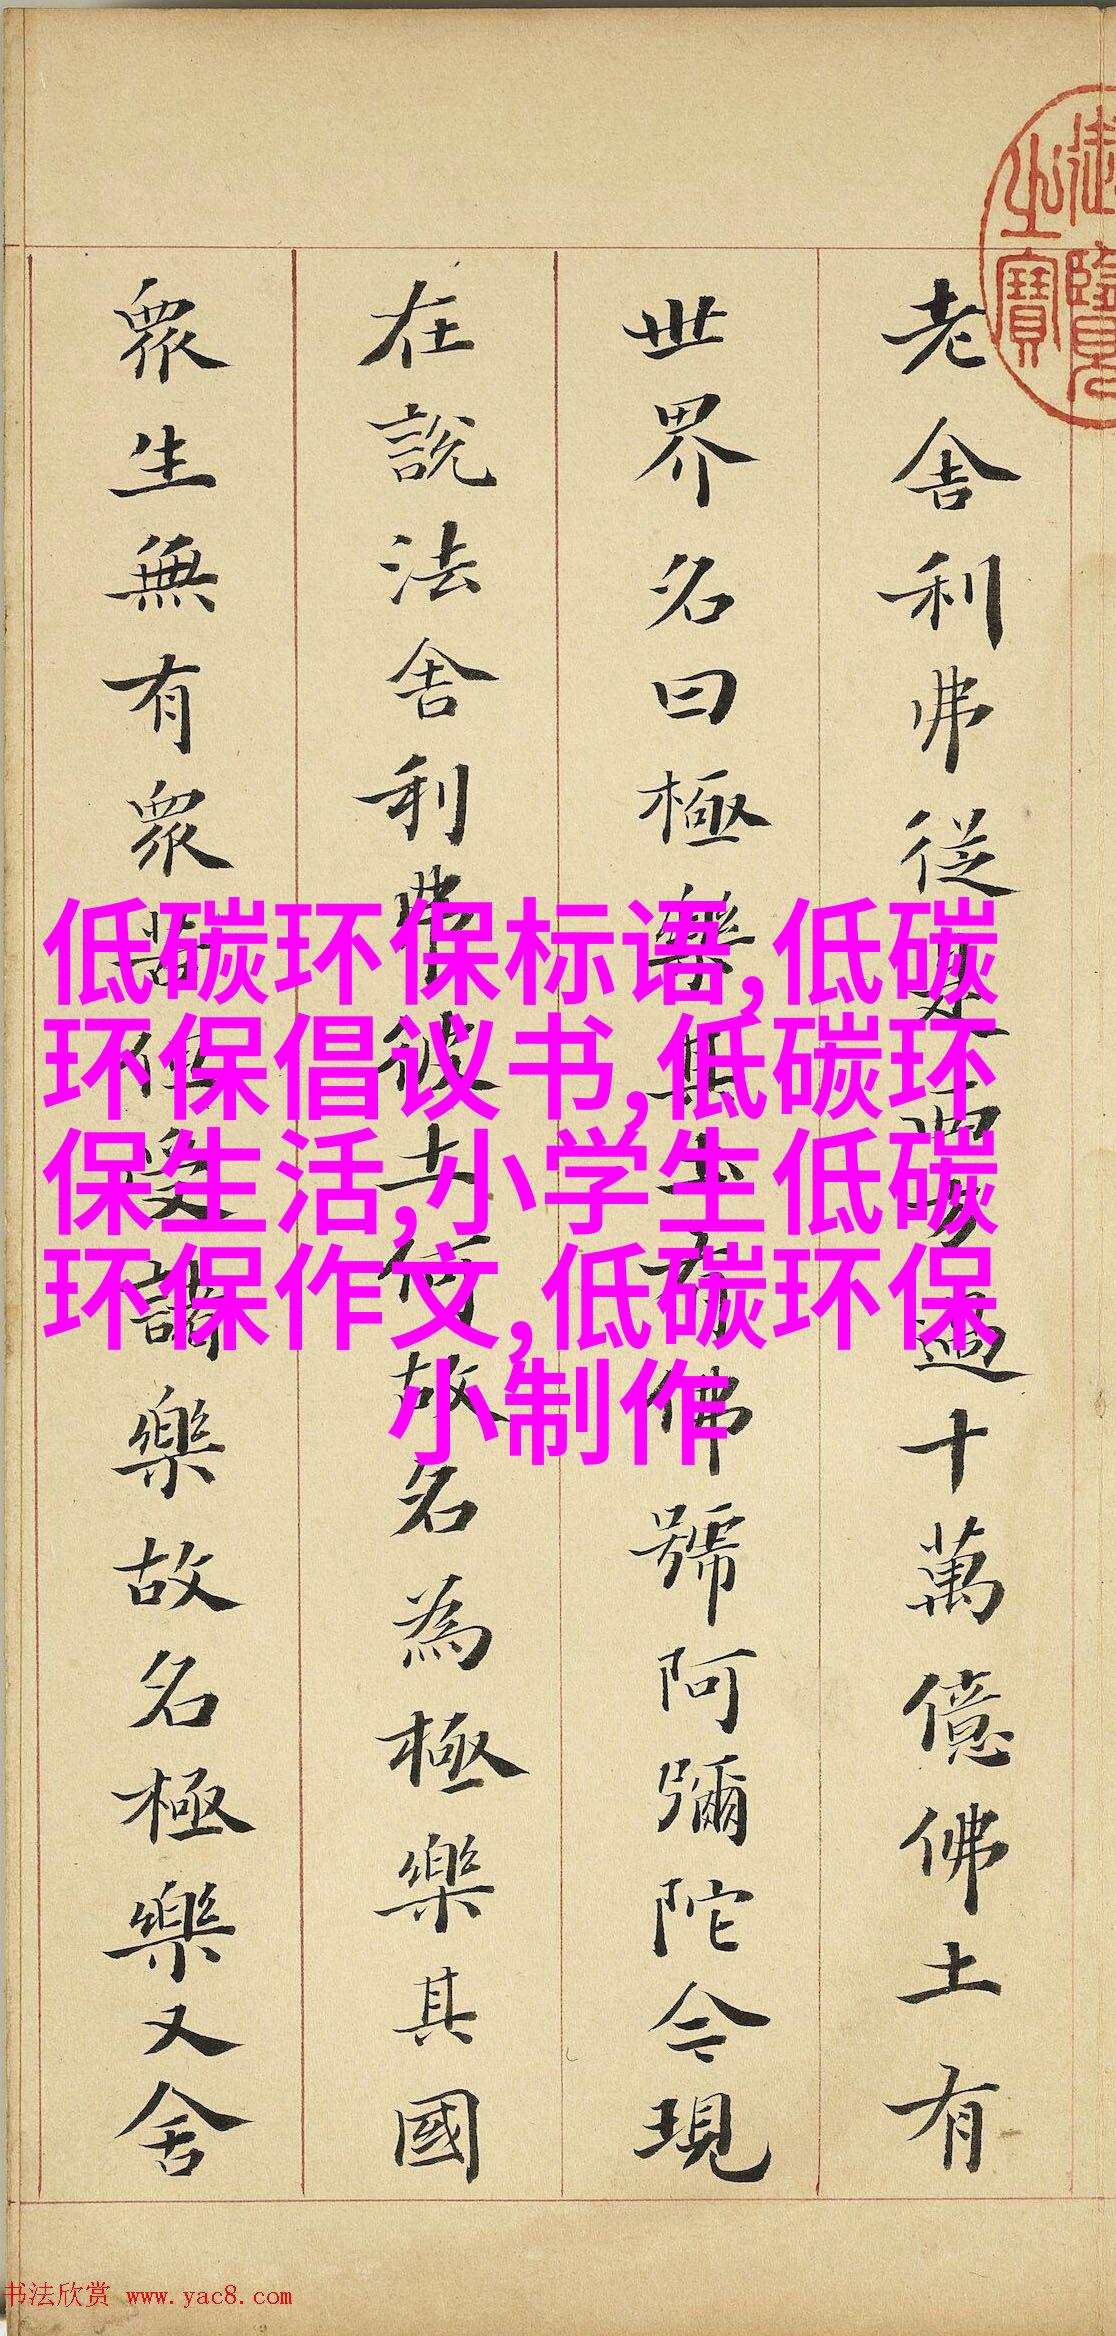 御覽之寶
老舍利弗從是西方過十萬億佛土有
世界名曰極樂其土有佛號阿彌陀今現
在說法舍利弗彼土何故名為極樂其國
眾生無有眾苦但受諸樂故名極樂又舍
低碳环保标语,低碳
环保倡议书,低碳环
保生活,小学生低碳
环保作文,低碳环保
小制作
书法欣赏 www.yac8.com